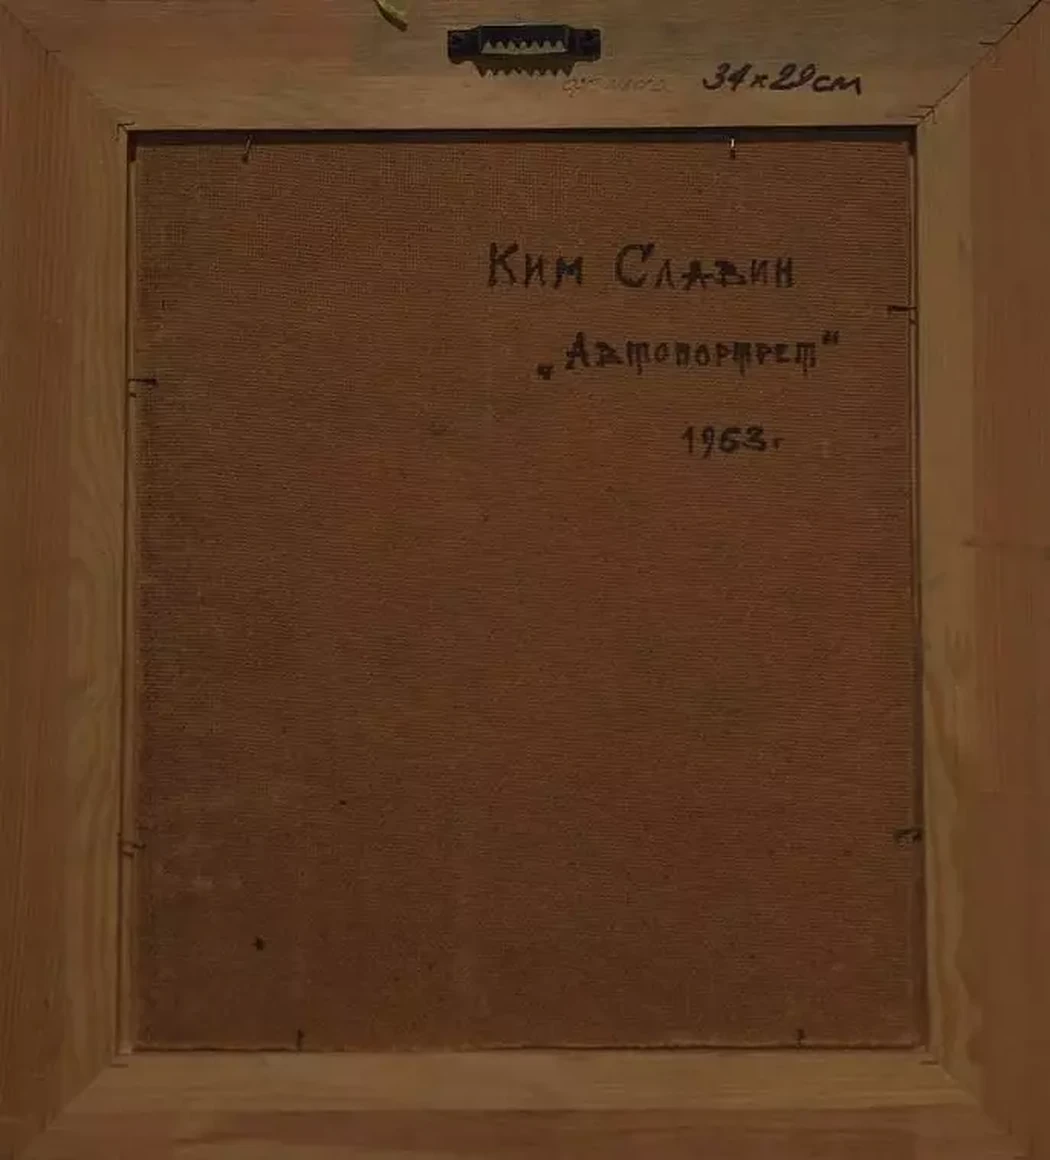 34 x 29 см
Ким Славин
„Автопортрет“
1963г